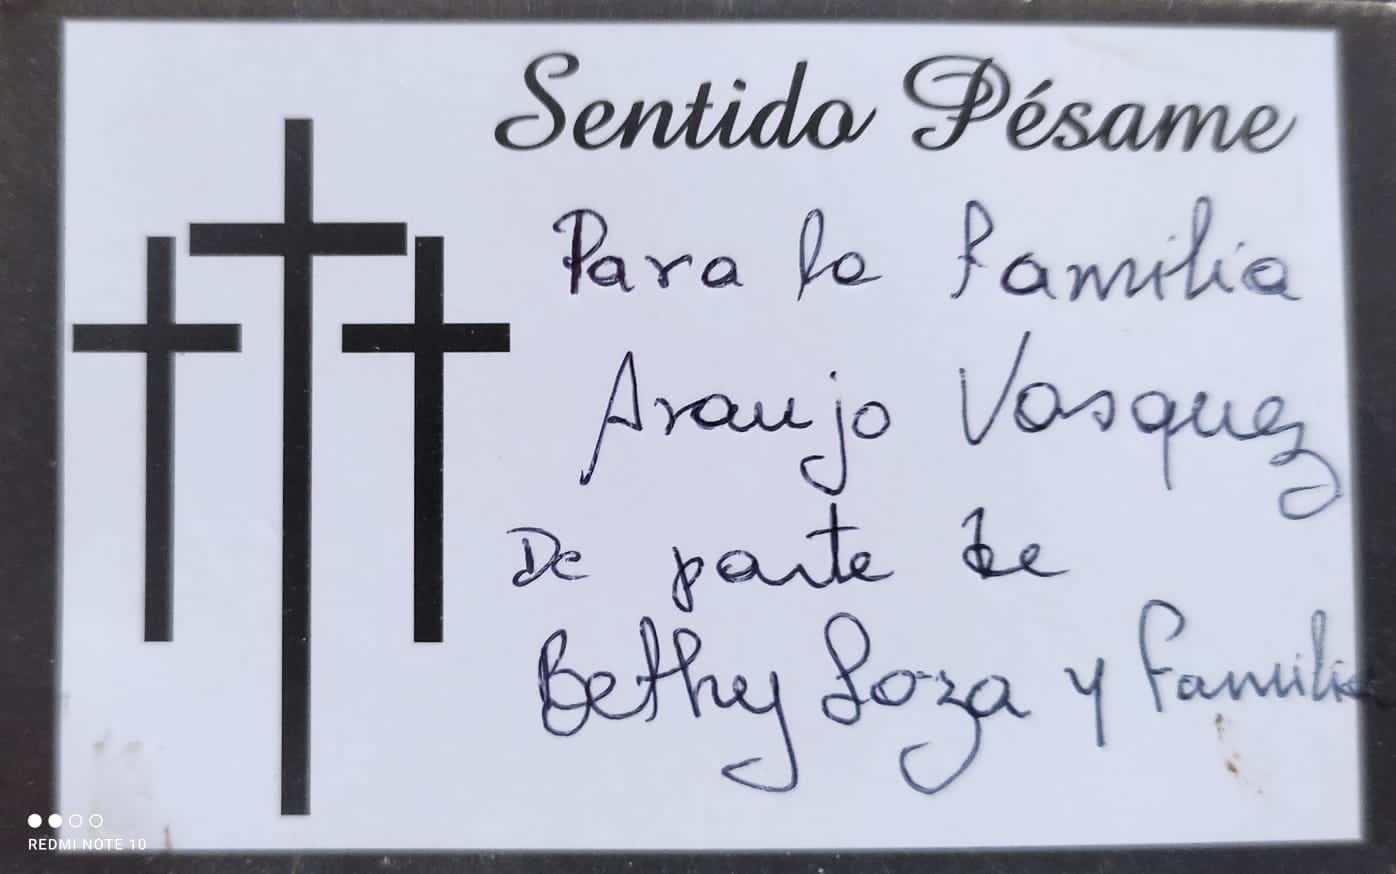 Sentido Pésame
Para la familia
Araujo Vasquez
De parte de
Bethy Loza y familia
REDMI NOTE 10